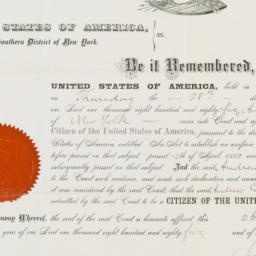 STATES OF AMERICA,
ss.
Southern District of New York.
Be it Remembered,
UNITED STATES OF AMERICA, held in
on Thursday the
Our Lord one thousand eight hundred and eighty
of New York came into Court and
Citizen of the United States of America, pursuant to the
States of America entitled An Act to establish an uniform
before passed on that subject passed 14th of April 1802
subsequently passed on that subject And the said Andrew
to the Court such evidence, and made such declaration and
it was considered by the said Court, that the said Andrew
was admitted to be a CITIZEN OF THE UNITED
mony Whereof, the seal of the said Court is hereunto affixed this 26
year of our Lord one thousand eight hundred and eighty five